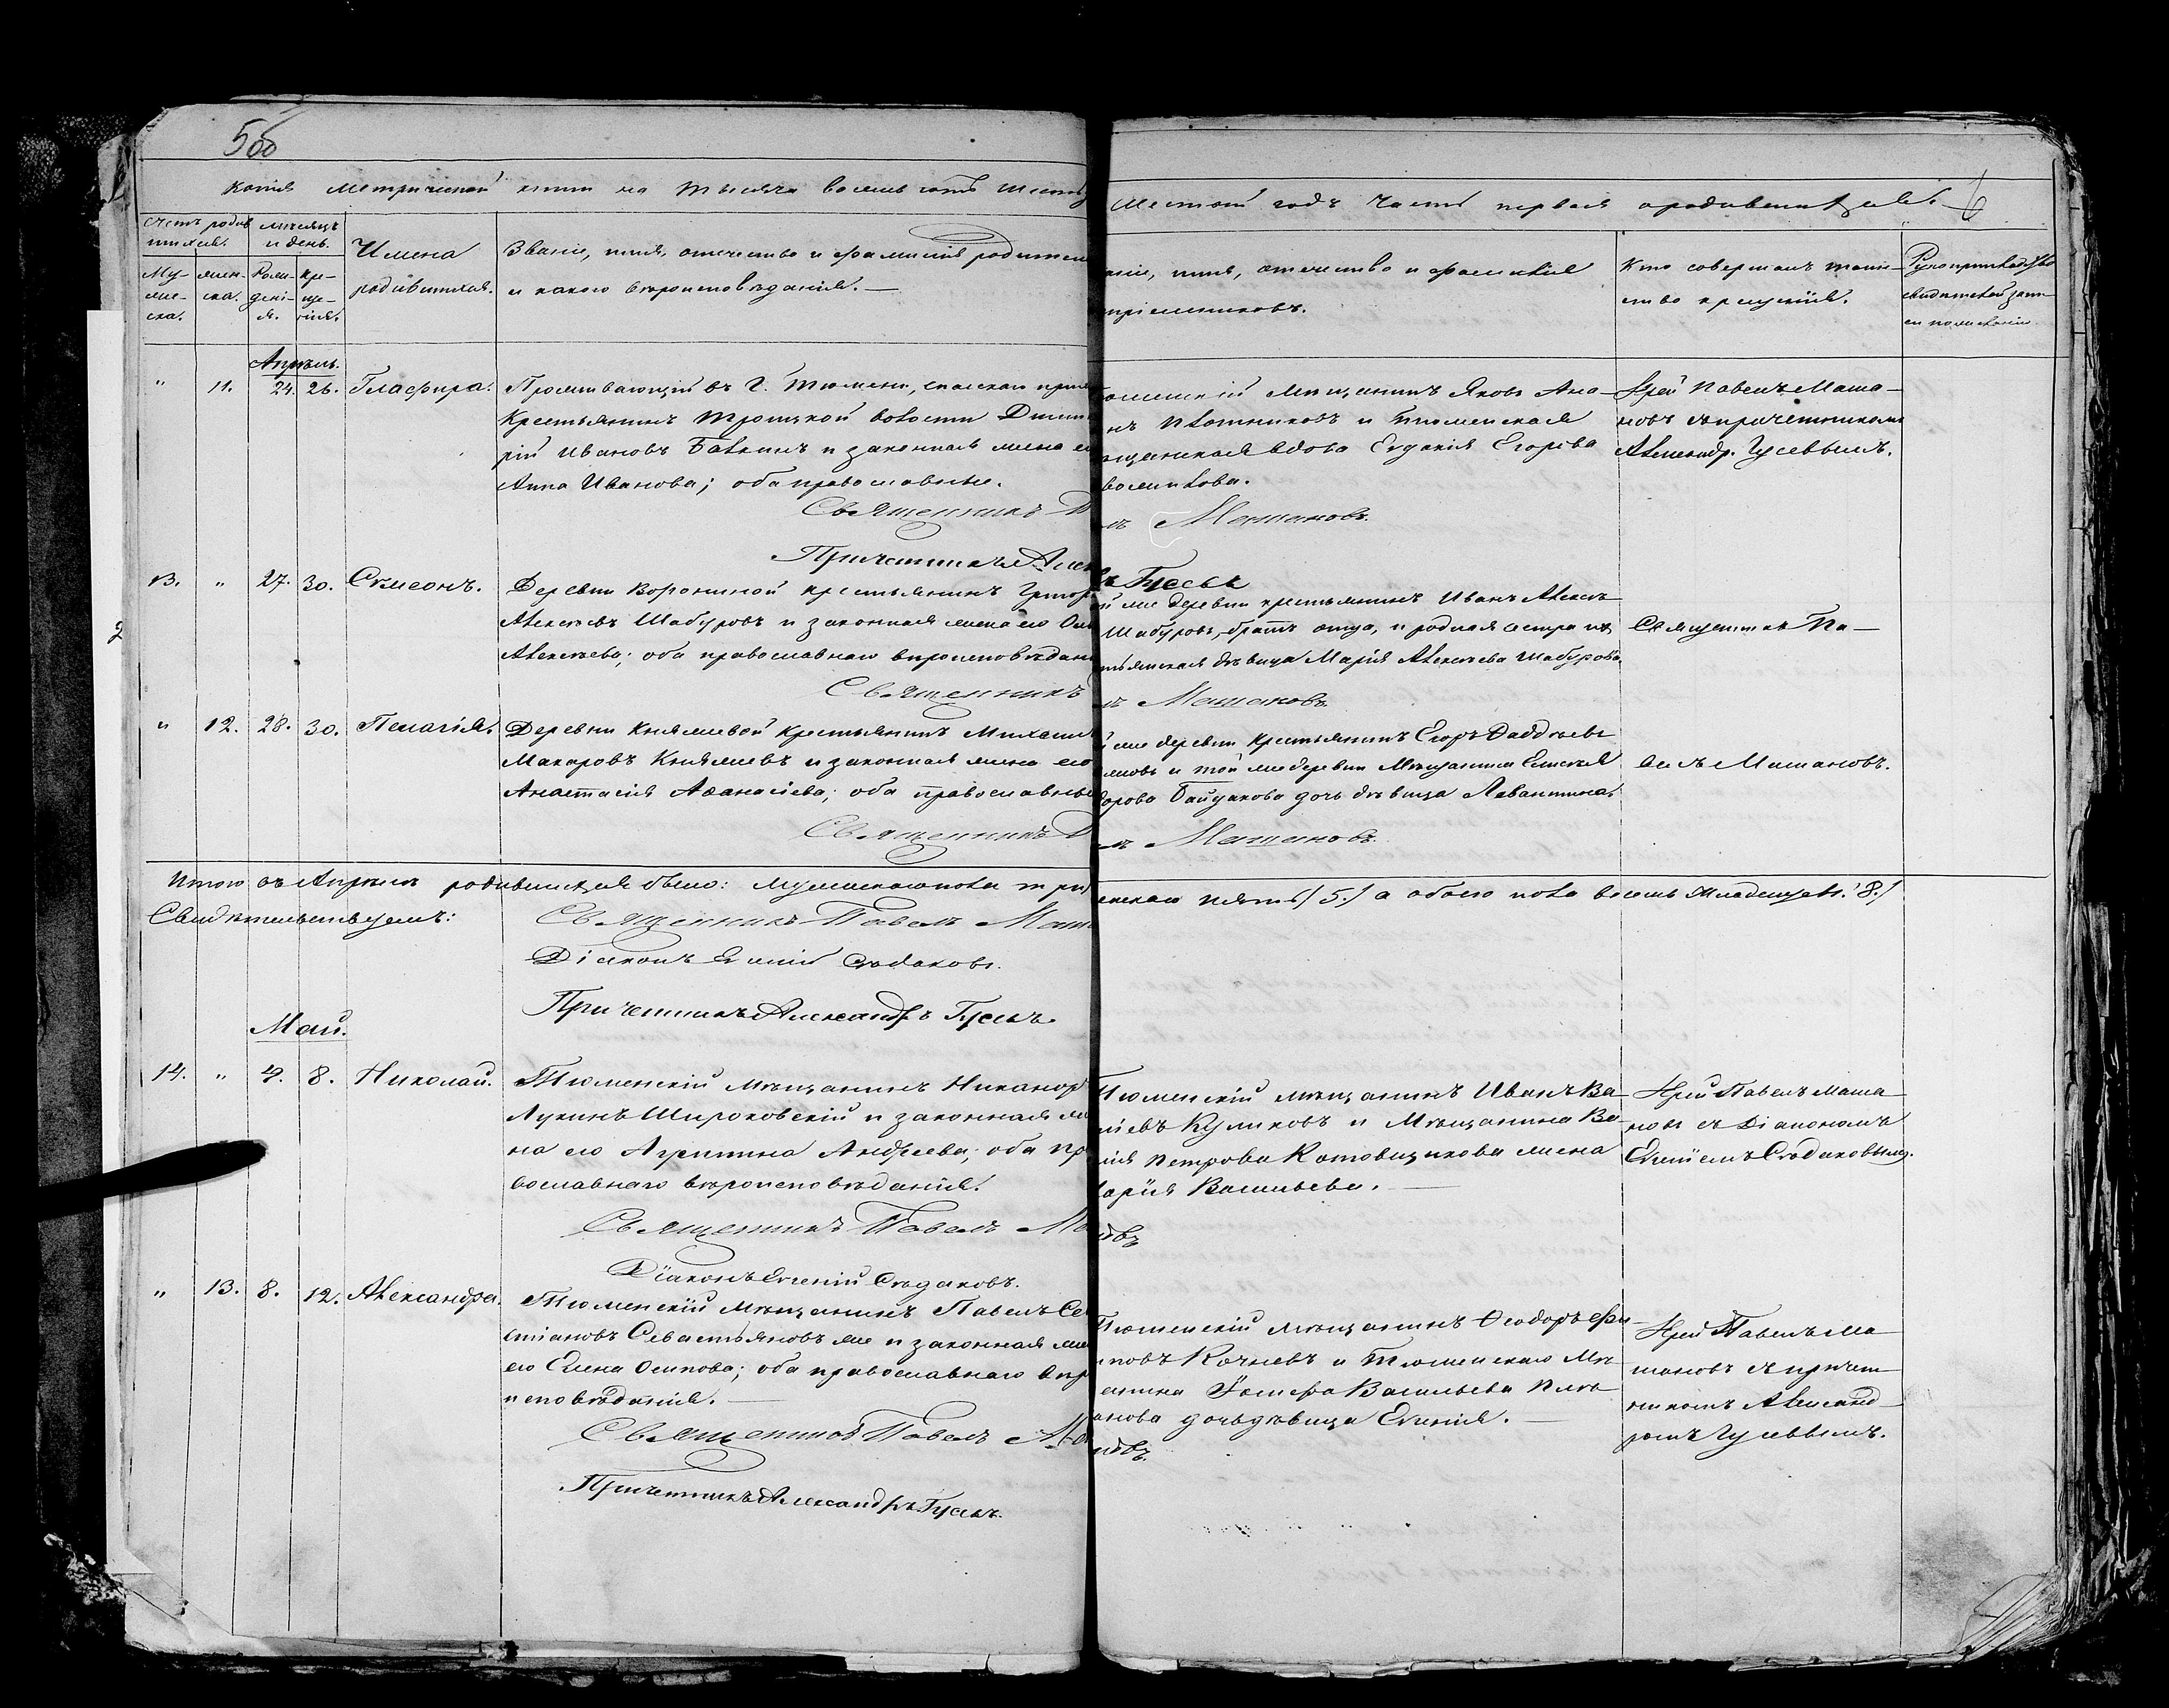 5об
6
Копія Метрической книги на тысяча восемь сотъ шесть
шестой годъ часть первая о родившихся.
Счетъ родив
шихся.
Мѣсяцъ
и день.
Имена
родившихся.
Званіе, имя, отечество и фамилія родител
и какого вѣроисповѣданія.
Му-
же-
ска.
жен-
ска.
Рож-
дені-
я.
Кре-
ще-
нія.
аніе, имя, отечество и фамилія
пріемниковъ.
Кто совершалъ таин-
ство крещенія.
Рукоприкладство
свидѣтелей запи-
си по желанію
Апрѣль.
" 11. 24. 26. Глафира.
Проживающій въ г. Тюмени, спасскаго при
Крестьянинъ Троицкой волости Дмит
рій Ивановъ Бабкинъ и законная жена е
Анна Иванова; оба православные.
Священникъ П
Причетникъ Алек
юменскій мѣщанинъ Яковъ Ана-
нъ Плотниковъ и тюменская
ѣщанская вдова Евдокія Егорова
Іерей Павелъ Маша-
новъ съ причетникомъ
Александр. Гусевымъ.
лъ Машановъ.
ъ Гусевъ
13. " 27. 30. Сѵмеонъ.
Деревни Ворониной крестьянинъ Григор
Алексѣевъ Шабуровъ и законная жена его
Алексѣева; оба православнаго вѣроисповѣдан
Священникъ
й же деревни крестьянинъ Иванъ Алексѣ
Шабуровъ, братъ отца, и родная сестра ихъ
тьянская дѣвица Марія Алексѣева Шабурова.
Священникъ Па-
лъ Машановъ.
" 12. 28. 30. Пелагія.
Деревни Княжевой крестьянинъ Михаил
Макаровъ Княжевъ и законная жена его
Анастасія Аѳанасіева; оба православные
Священникъ П
й же деревни крестьянинъ Егоръ Фаддѣевъ
и той же деревни Мѣщанина Елисея
дорова Байдакова дочь дѣвица
велъ Машановъ.
лъ Машановъ.
Итого въ Апрѣлѣ родившихся было: мужескаго пола три
енскаго пять (5.) а обоего пола восемь младенцевъ. (8.)
Свидѣтельствуемъ:
Священникъ Павелъ Маш
Діаконъ Евгеній Сѣдаковъ.
Причетникъ Александръ Гусевъ
Май.
14. " 4. 8. Николай.
Тюменскій мѣщанинъ Никаноръ
Лукинъ Широковскій и законная же
на его Агрипина Андреева; оба пр
вославнаго вѣроисповѣданія.
Священникъ Павелъ Ма
Діаконъ Евгеній Сѣдаковъ.
Тюменскій мѣщанинъ Иванъ Ва-
ліевъ Куликовъ и Мѣщанина Ва-
лія Петрова Котовщикова жена
арія Васильева.
новъ
Іерей Павелъ Маша
новъ съ Діакономъ
Евгеніемъ Сѣдаковымъ.
" 13. 8. 12. Александра.
Тюменскій мѣщанинъ Павелъ Се
стіановъ Севастьяновъ же и законная же
его Елена Осипова; оба православнаго вѣр
исповѣданія.
Священникъ Павелъ Ма
Причетникъ Александръ Гусевъ.
Тюменскій мѣщанинъ Ѳеодоръ Фи-
повъ Кочневъ и Тюменскаго Мѣ-
анина Іосифа Васильева
анова дочь дѣвица Евгенія.
новъ.
Іерей Павелъ Ма
шановъ съ причет
никомъ Александ
ромъ Гусевымъ.